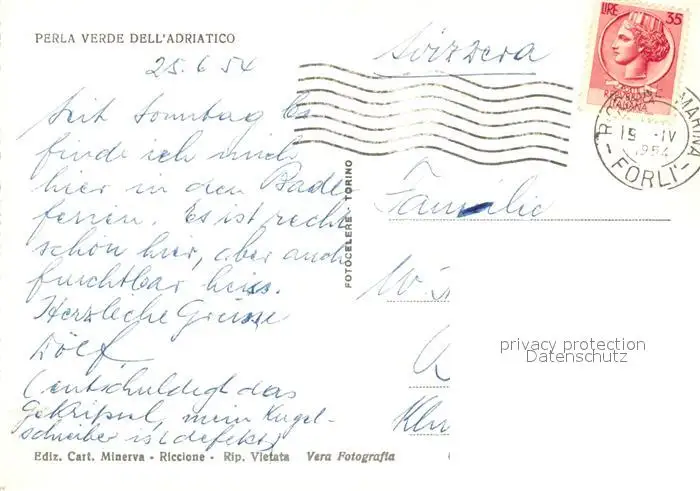 PERLA VERDE DELL'ADRIATICO
25.6 54
Svizzera
LIRE 35
REPUBBLICA
ITALIANA
MARINA
19 -IV
1954
- FORLI' -
Seit Sonntag
finde ich mich
hier in den Bade
ferien. Es ist recht
schön hier, aber auch
furchtbar heiss.
Herzliche Grüsse
Dölf
(entschuldigt das
Gekripsel, mein Kugel-
schreiber ist defekt)
FOTOCELERE - TORINO
Familie
W.
privacy protection
Datenschutz
Ediz. Cart. Minerva - Riccione - Rip. Vietata Vera Fotografia